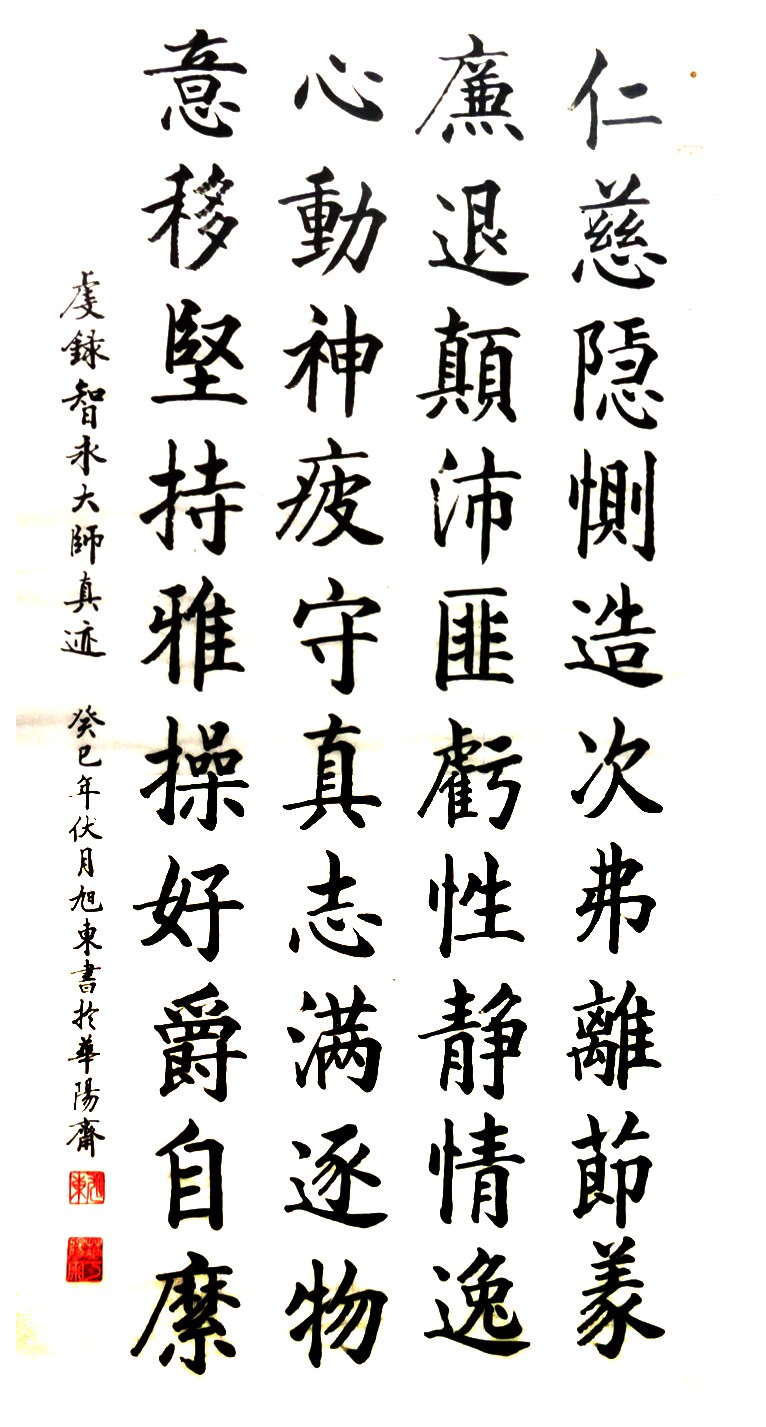 仁慈隱惻造次弗離節義
廉退顛沛匪虧性静情逸
心動神疲守真志满逐物
意移堅持雅操好爵自縻
虔録智永大師真迹 癸巳年伏月旭東書於華陽齋